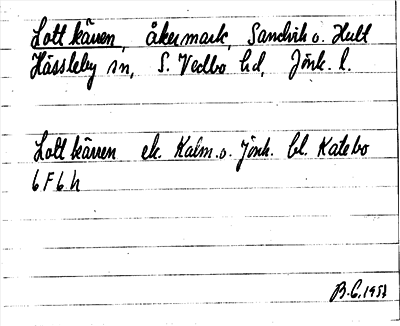 Lottkärren, åkermark, Sandvik o. Hult
Hässleby sn, S. Vedbo hd, Jönk. l.
Lottkärren ek. Kalm. o. Jönk. bl. Kalebo
6F6h
B.G. 1951